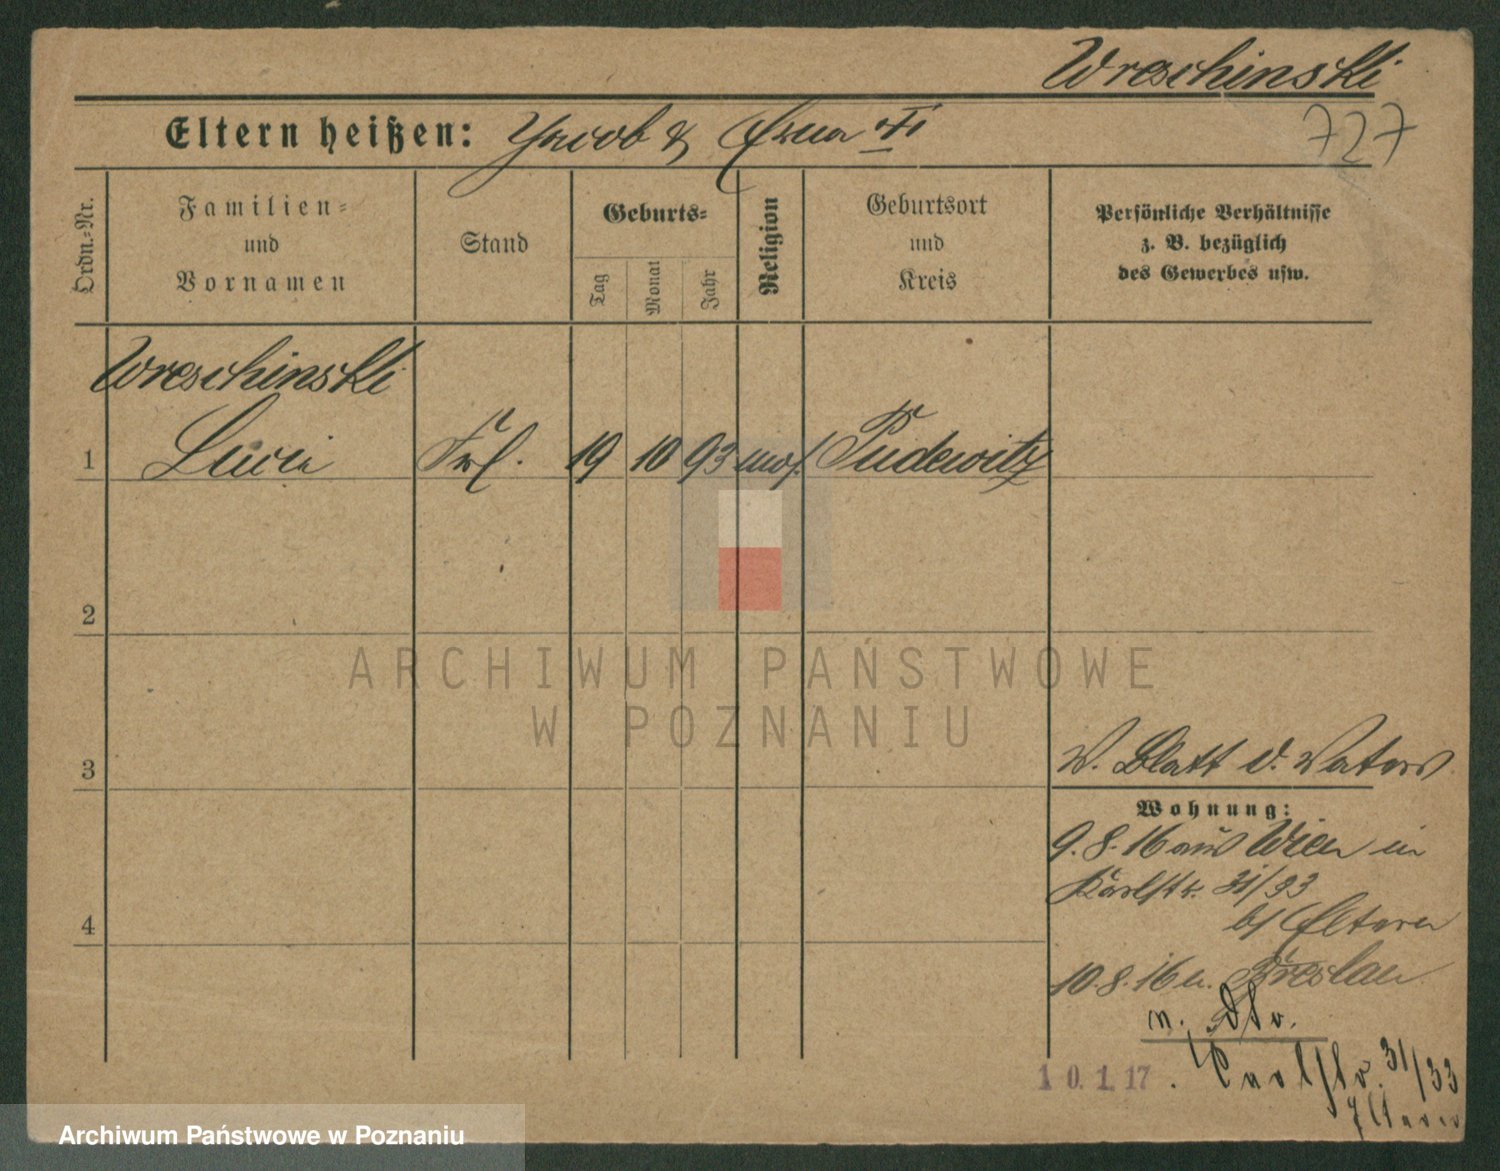 Wreschinski
727
Eltern heißen: Jacob & Erna
Ordn.-Nr.
Familien-
und
Vornamen
Stand
Geburts-
Tag
Monat
Jahr
Religion
Geburtsort
und
Kreis
Persönliche Verhältnisse
z. B. bezüglich
des Gewerbes usw.
Wreschinski
1 Frl. 19 10 93 mos. Pudewitz
2
ARCHIWUM PAŃSTWOWE
W POZNANIU
3 Blatt d. Vaters
Wohnung:
9.8.16 aus Wien in
Karlstr. 31/33
b/ Eltern
4
10.8.16 n. Breslau
10.1.17. Carlstr. 31/33
Eltern
Archiwum Państwowe w Poznaniu